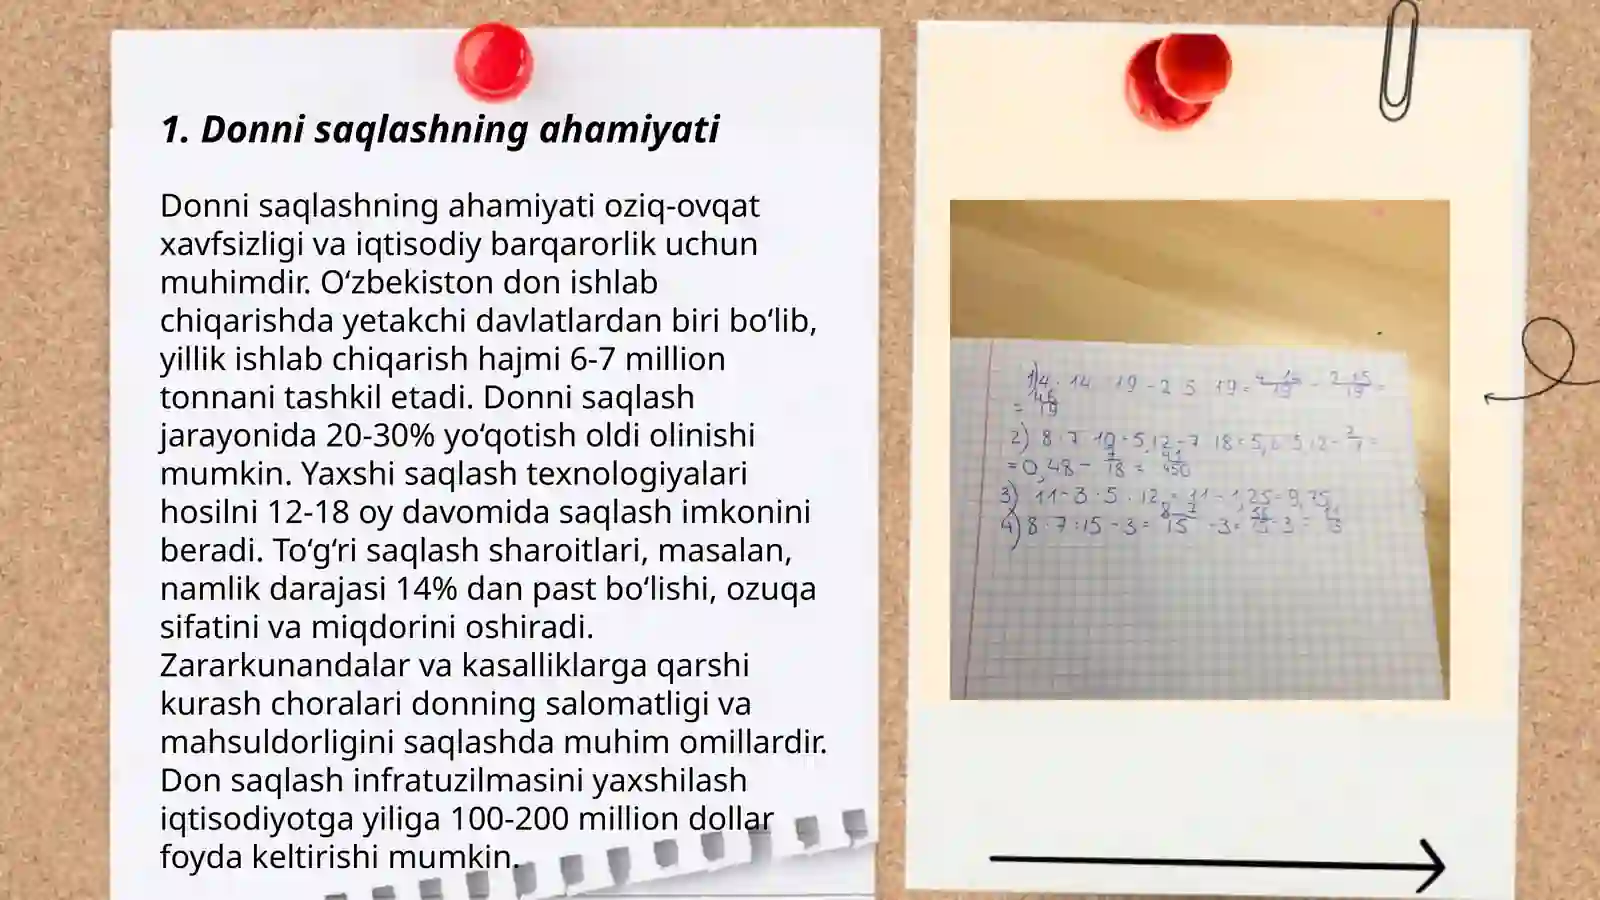 1. Donni saqlashning ahamiyati
Donni saqlashning ahamiyati oziq-ovqat
xavfsizligi va iqtisodiy barqarorlik uchun
muhimdir. O‘zbekiston don ishlab
chiqarishda yetakchi davlatlardan biri bo‘lib,
yillik ishlab chiqarish hajmi 6-7 million
tonnani tashkil etadi. Donni saqlash
jarayonida 20-30% yo‘qotish oldi olinishi
mumkin. Yaxshi saqlash texnologiyalari
hosilni 12-18 oy davomida saqlash imkonini
beradi. To‘g‘ri saqlash sharoitlari, masalan,
namlik darajasi 14% dan past bo‘lishi, ozuqa
sifatini va miqdorini oshiradi.
Zararkunandalar va kasalliklarga qarshi
kurash choralari donning salomatligi va
mahsuldorligini saqlashda muhim omillardir.
Don saqlash infratuzilmasini yaxshilash
iqtisodiyotga yiliga 100-200 million dollar
foyda keltirishi mumkin.
3) 11-3·5·12=11-1,25=9,75